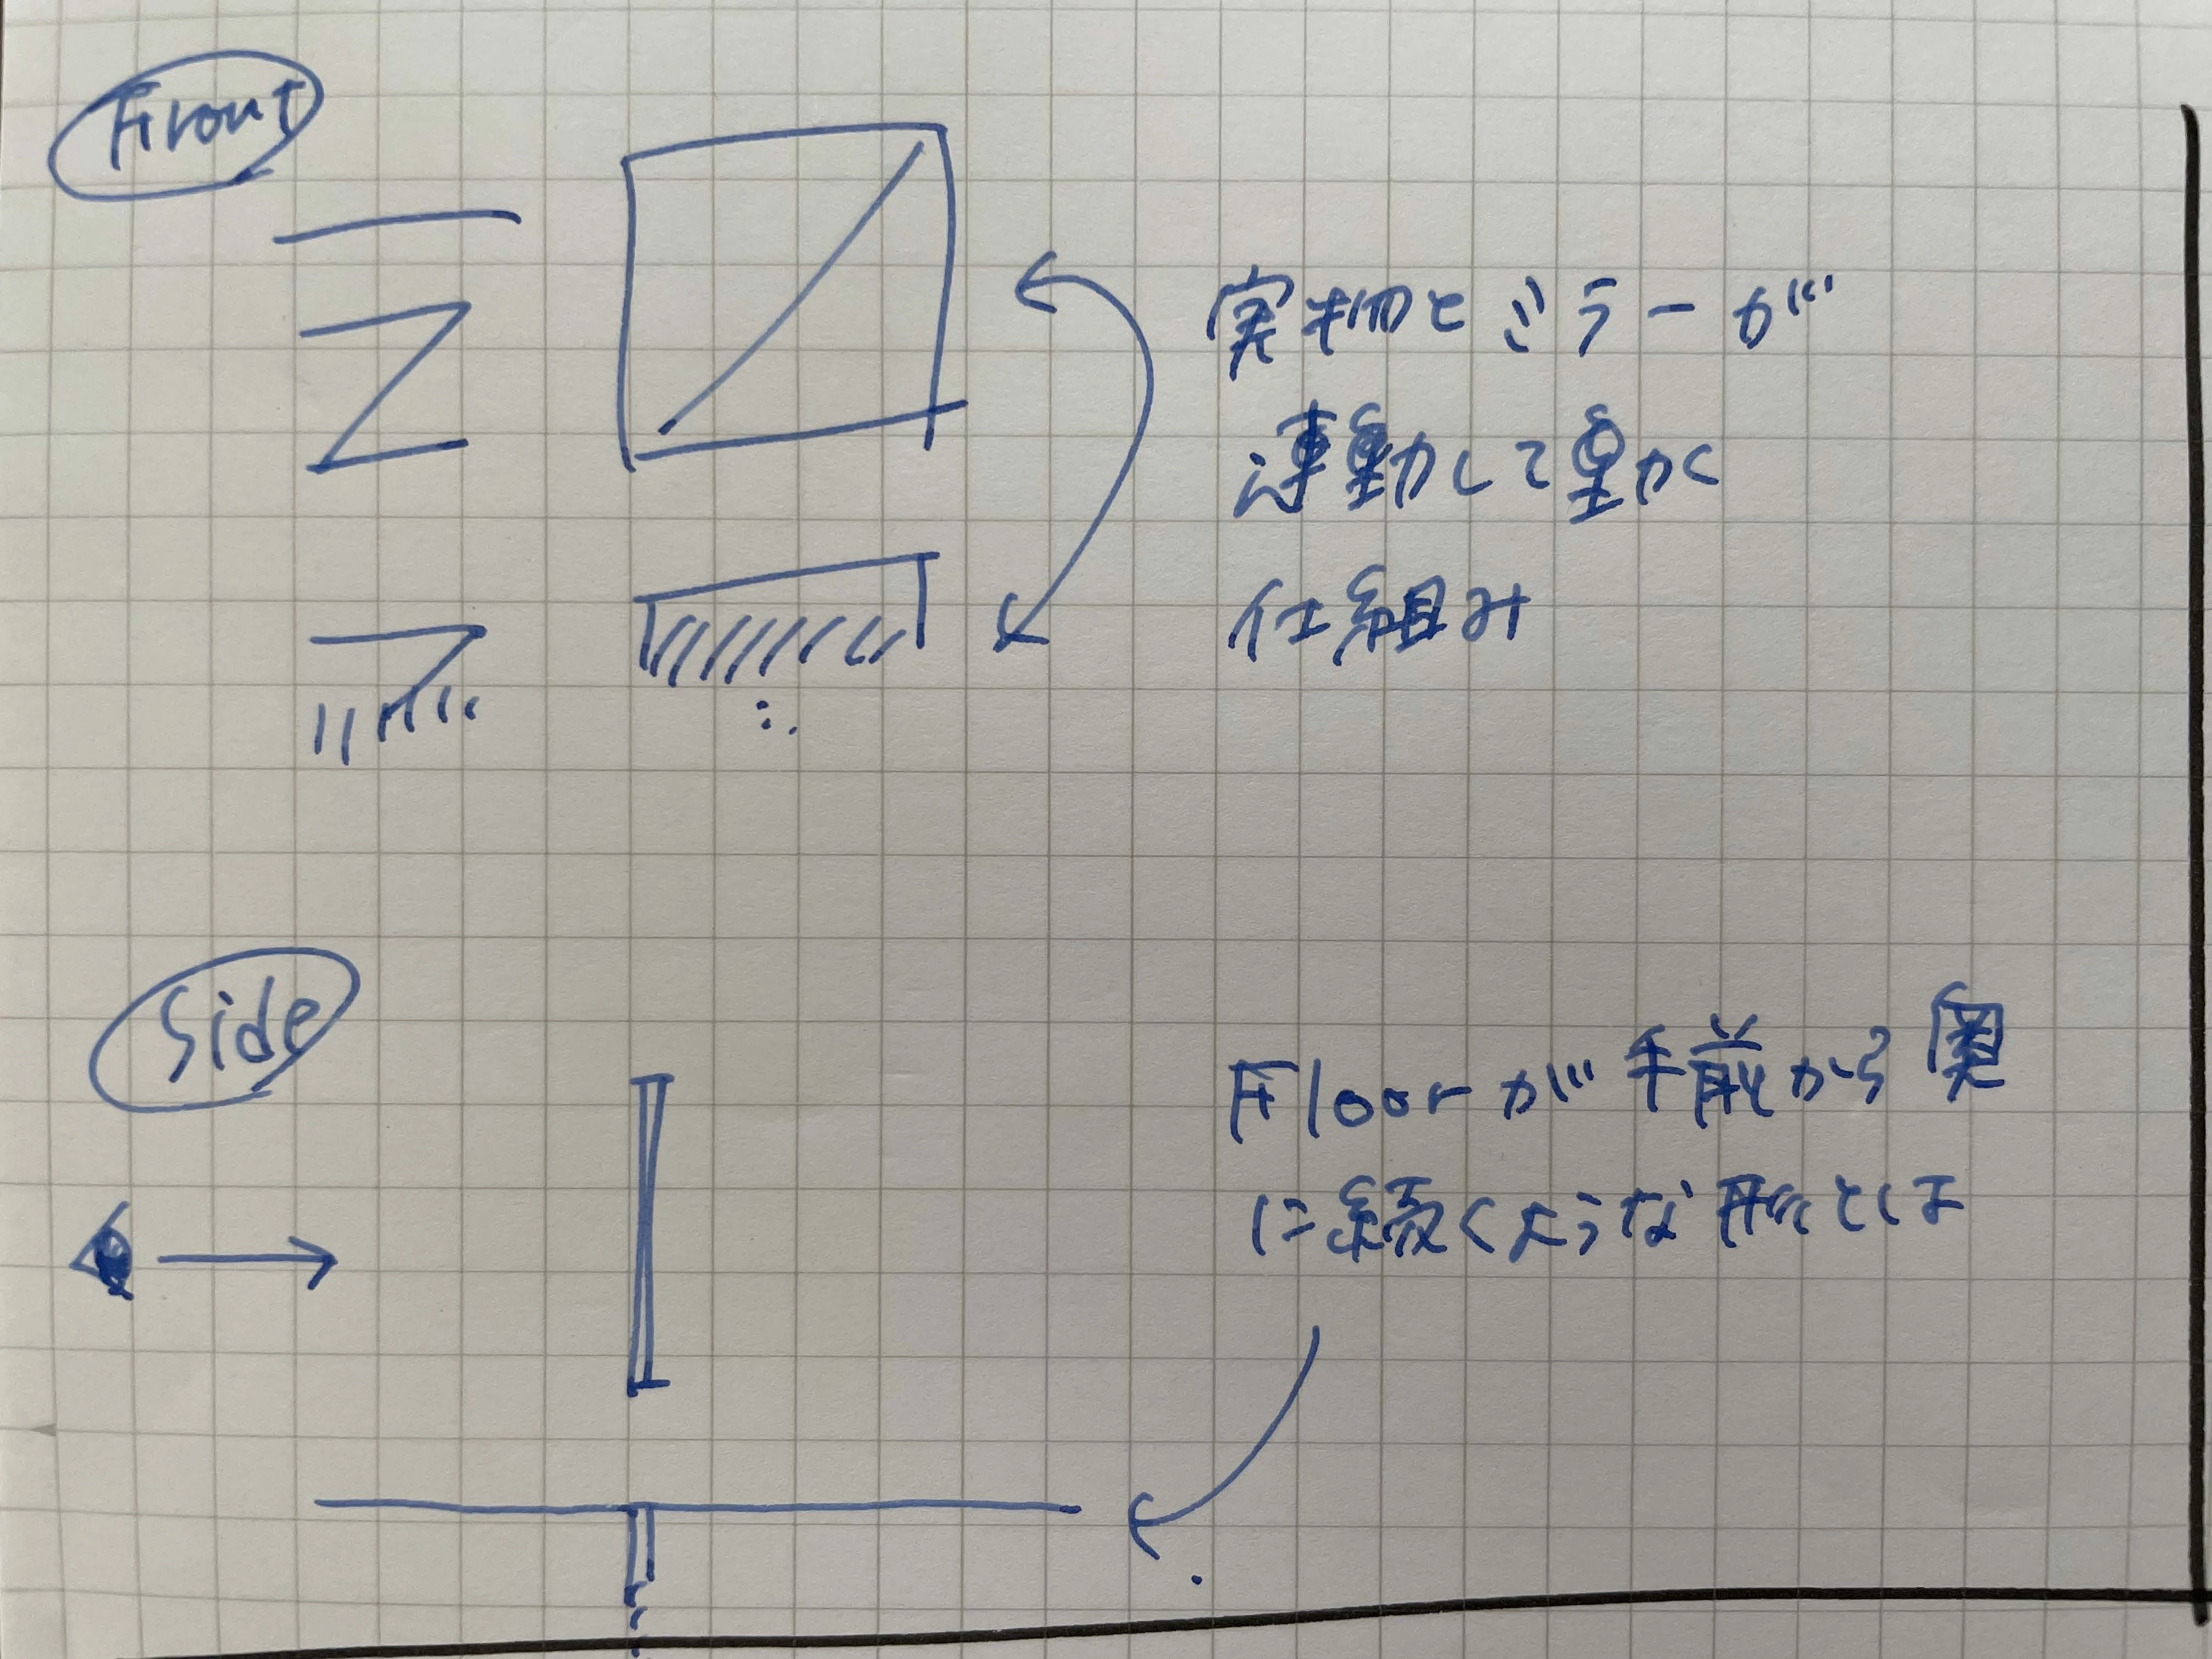 Front
実物とミラーが
連動して動く
仕組み
Side
Floorが手前から奥
に続くような形とは